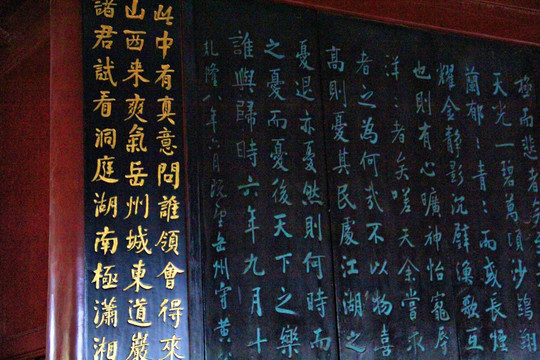 極而悲者矣
天光一碧萬頃沙鷗翔
蘭郁〻青〻而或長煙
耀金静影沉璧漁歌互
也則有心曠神怡寵辱
洋〻者矣嗟夫余嘗求
者之為何哉不以物喜
高則憂其民處江湖之
憂退亦憂然則何時而
之憂而憂後天下之樂
誰與歸時六年九月十
乾隆八年六月岳州守黄
此中有真意問誰領會得來
山西来爽氣岳州城東道巖
諸君試看洞庭湖南極瀟湘